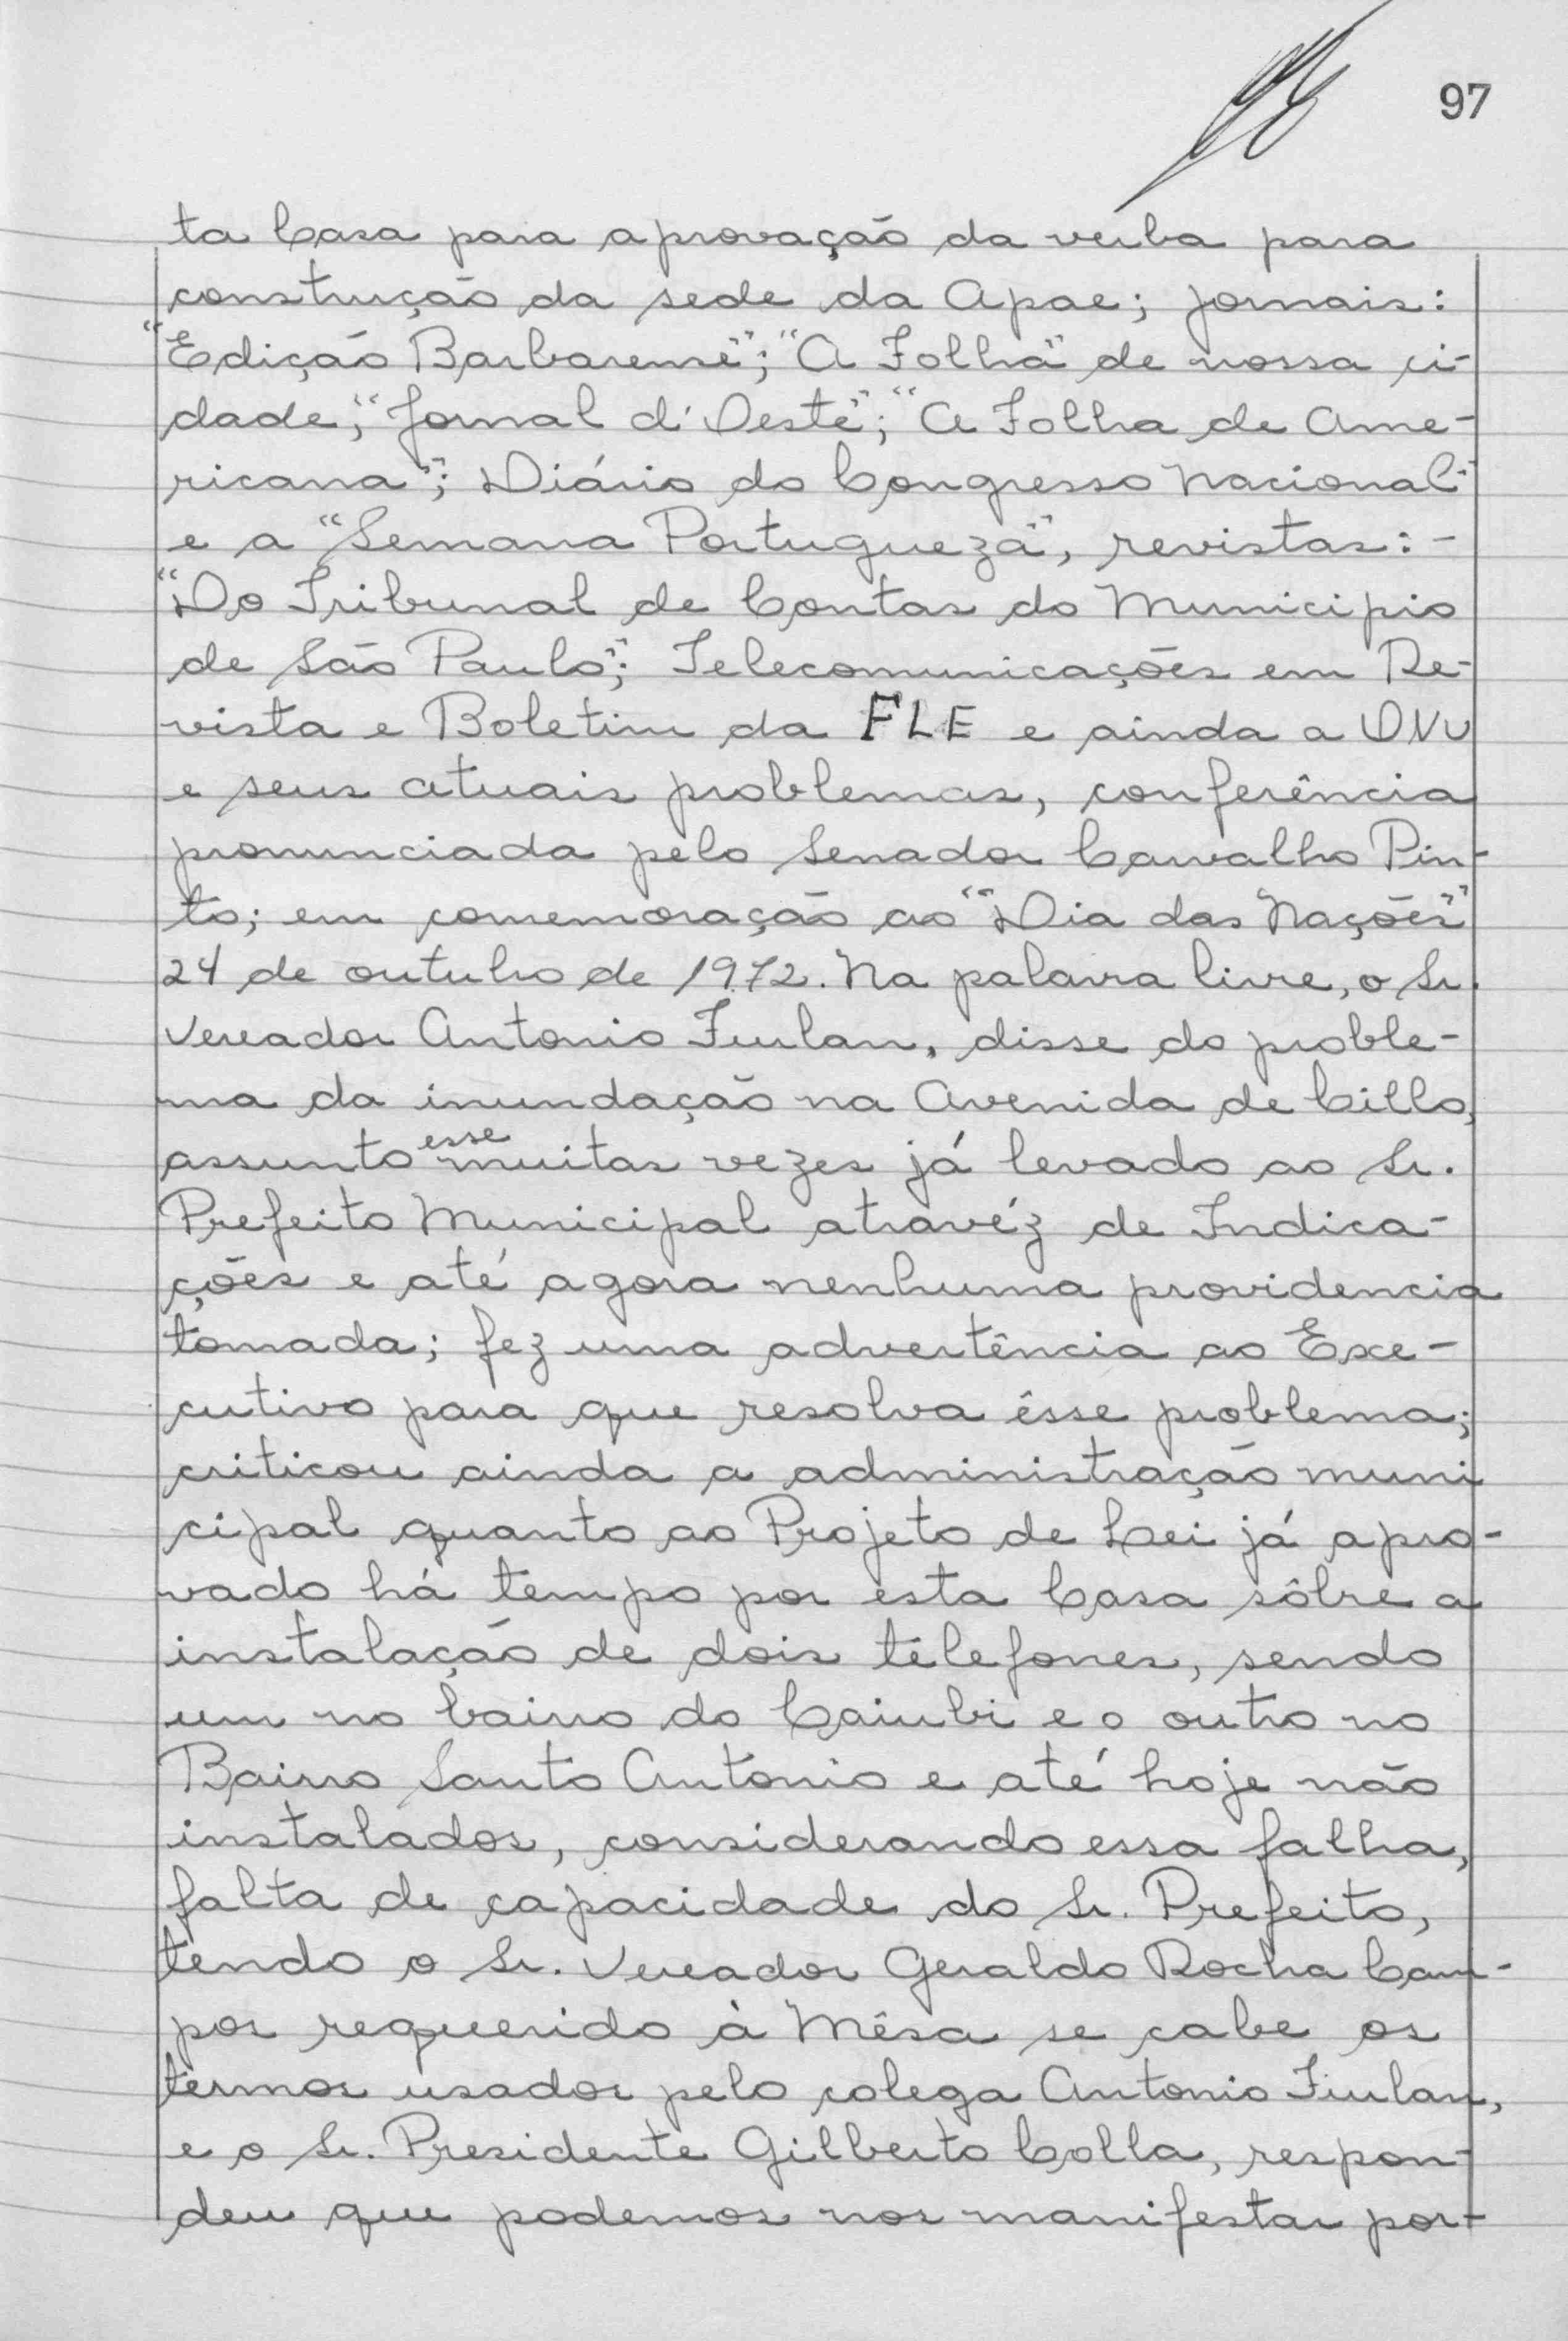 97
ta Casa para aprovação da verba para
construção da sede da Apae; jornais:
"Edição Barbarense"; "A Folha" de nossa ci-
dade; "Jornal d'Oeste"; "A Folha de Ame-
ricana"; Diário do Congresso Nacional"
e a "Semana Portugueza", revistas:-
"Do Tribunal de Contas do Municipio
de São Paulo"; Telecomunicações em Re-
vista e Boletim da FLE e ainda a ONU
e seus atuais problemas, conferência
pronunciada pelo Senador Carvalho Pin-
to; em comemoração ao "Dia das Nações"
24 de outubro de 1972. Na palavra livre, o Sr.
Vereador Antonio Furlan, disse do proble-
ma da inundação na Avenida de Cillo,
assunto esse muitas vezes já levado ao Sr.
Prefeito Municipal atravéz de Indica-
ções e até agora nenhuma providencia
tomada; fez uma advertência ao Exe-
cutivo para que resolva êsse problema;
criticou ainda a administração muni
cipal quanto ao Projeto de Lei já apro-
vado há tempo por esta Casa sôbre a
instalação de dois telefones, sendo
um no bairro do Caiubi e o outro no
Bairro Santo Antonio e até hoje não
instalados, considerando essa falha,
falta de capacidade do Sr. Prefeito,
tendo o Sr. Vereador Geraldo Rocha Cam-
pos requerido à Mêsa se cabe os
termos usados pelo colega Antonio Furlan,
e o Sr. Presidente Gilberto Colla, respon-
deu que podemos nos manifestar por-